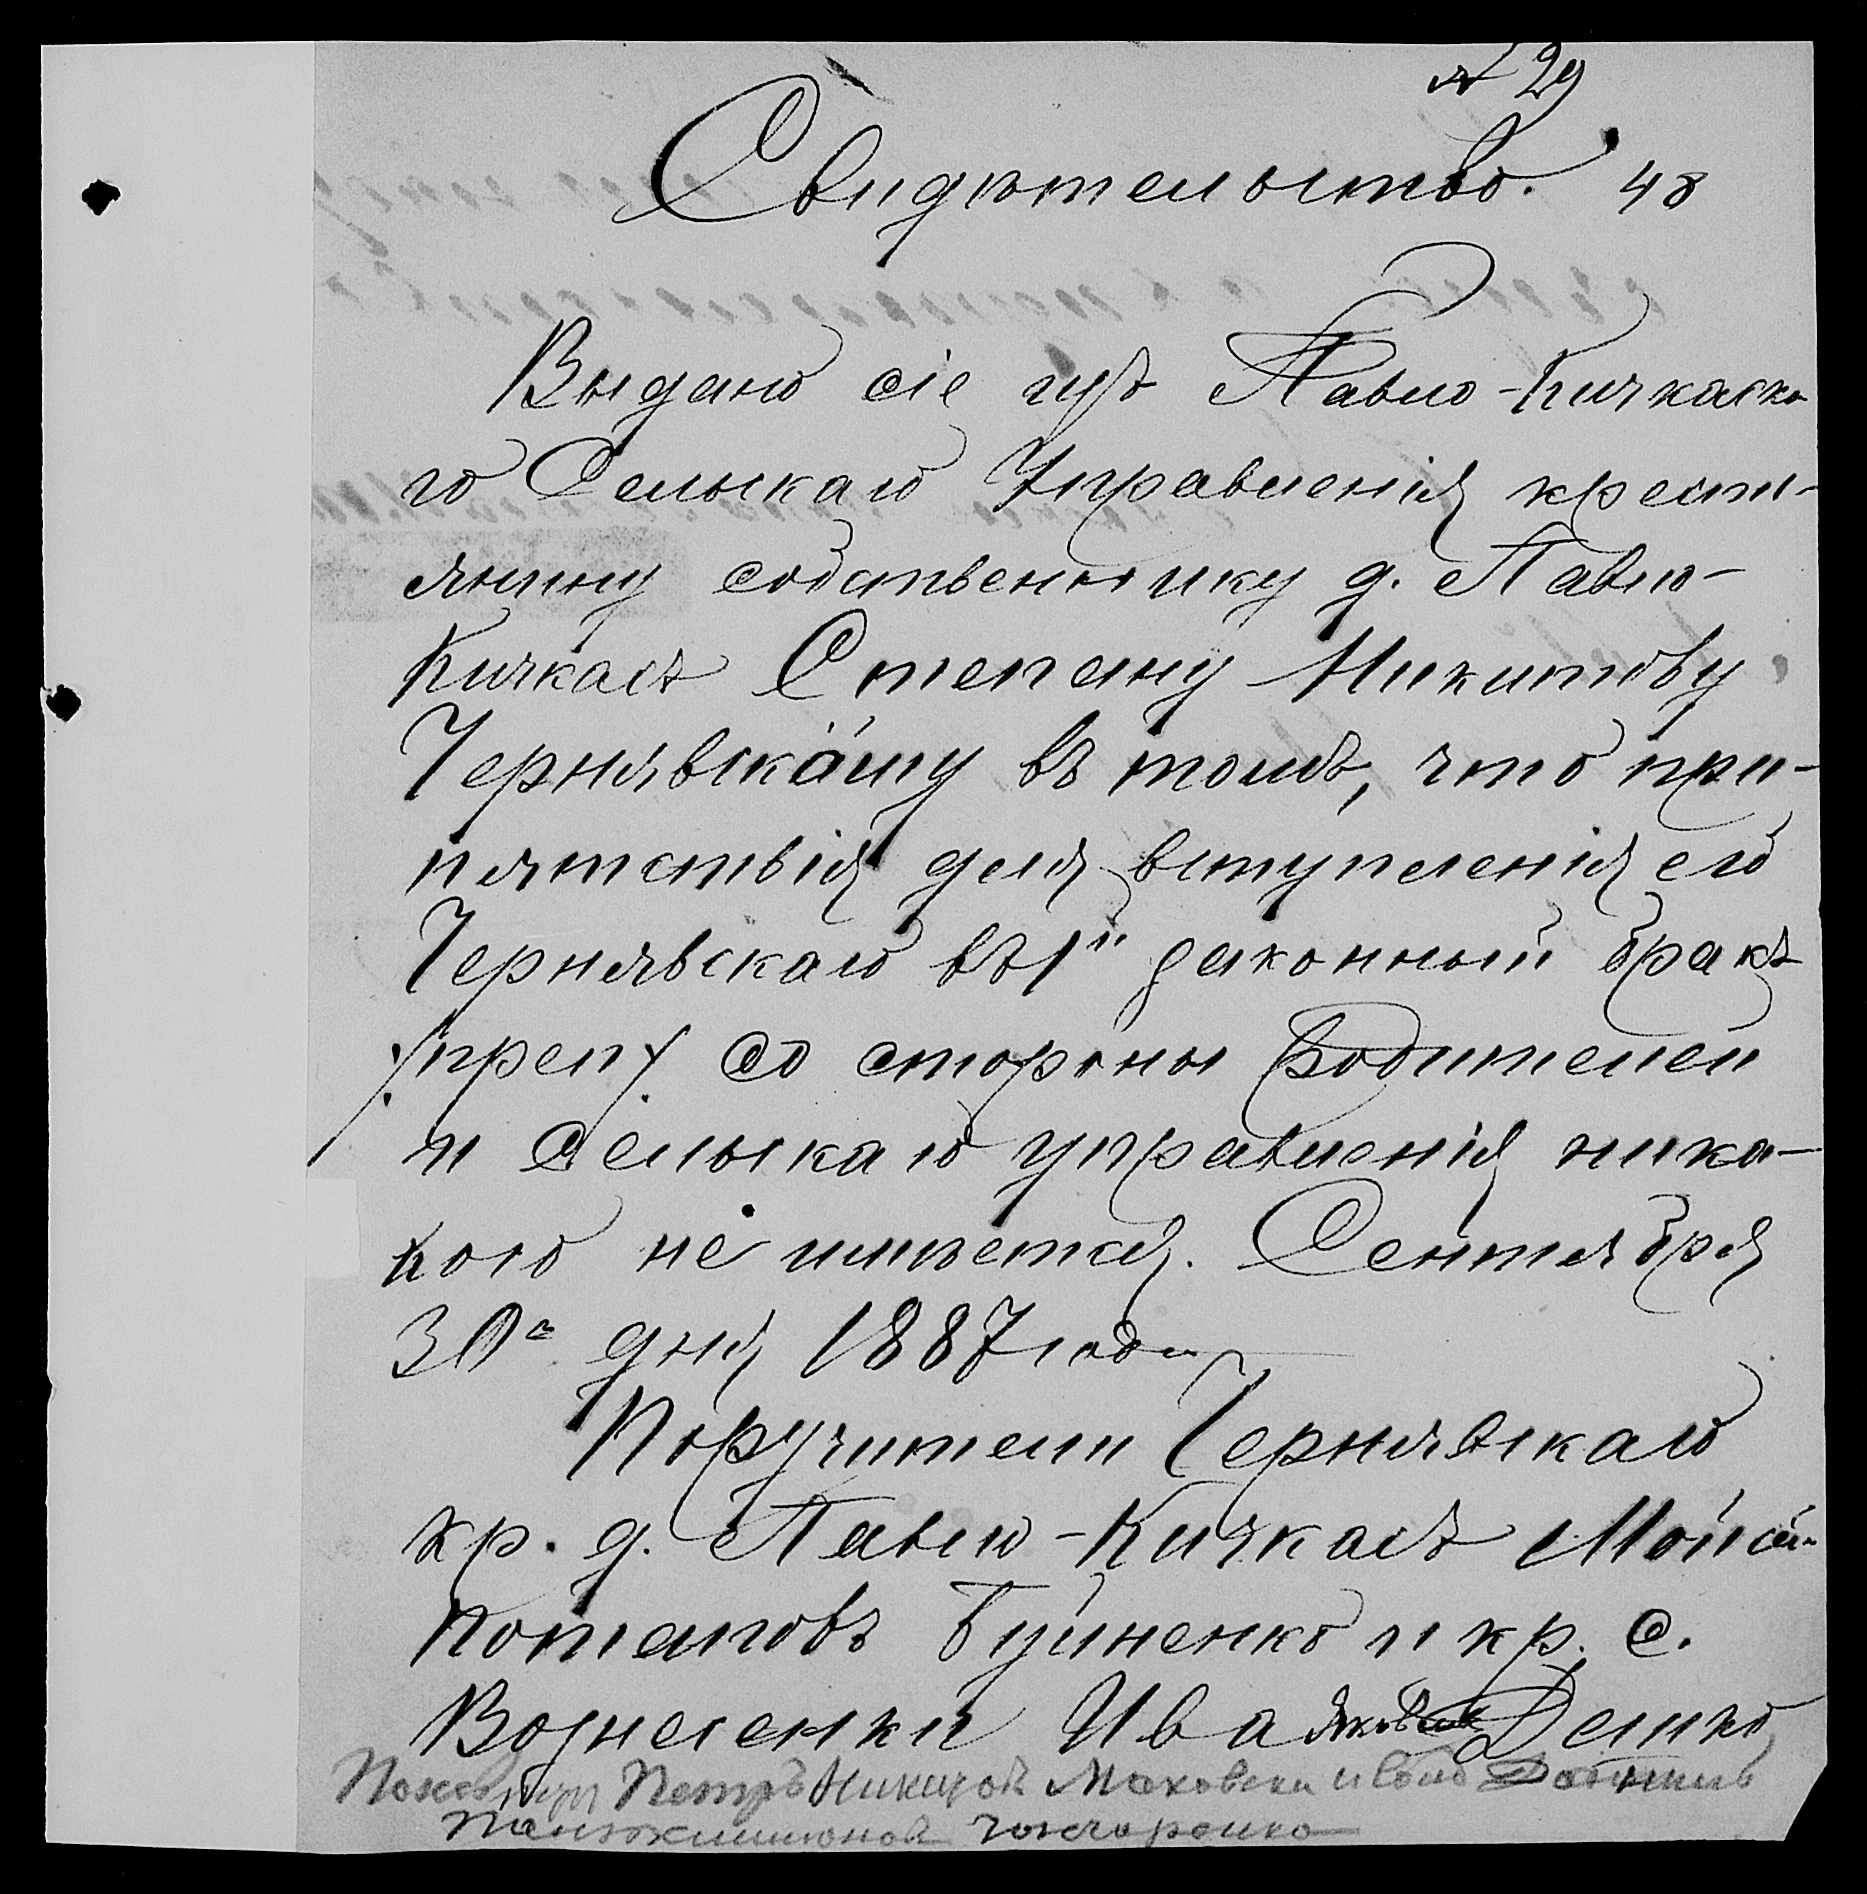 № 29
Свидѣтельство. 48
Выдано сіе изъ Павло-Кичкаска-
го Сельскаго Управленія крест-
янину собственнику д. Павло-
Кичкасъ Степану Никитову
Чернявскаму въ томъ, что при-
пятствія для вступленія его
Чернявскаго въ 1й законный бракъ
/:преп:/ со стороны Родителей
и Сельскаго управленія ника-
кого не имѣется. Сентября
30го дня 1887 года
Поручители Чернявскаго
кр. д. Павло-Кичкасъ Мойсей
Потаповъ Буйненко и кр. с.
Вознесенки Ива Яковъ Демко
Петръ Никитовъ Маховски
Гончаренко